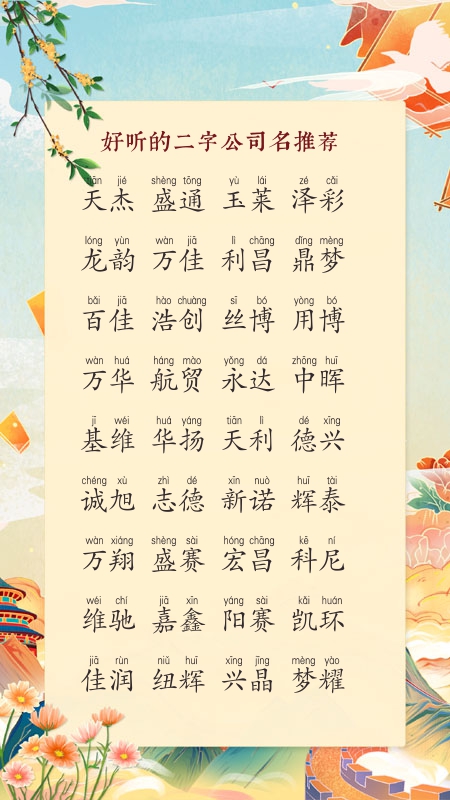 好听的二字公司名推荐
tiān jié shèng tōng yù lái zé cǎi
天杰 盛通 玉莱 泽彩
lóng yùn wàn jiā lì chāng dǐng mèng
龙韵 万佳 利昌 鼎梦
bǎi jiā hào chuàng sī bó yòng bó
百佳 浩创 丝博 用博
wàn huá háng mào yǒng dá zhōng huī
万华 航贸 永达 中晖
jī wéi huá yáng tiān lì dé xīng
基维 华扬 天利 德兴
chéng xù zhì dé xīn nuò huī tài
诚旭 志德 新诺 辉泰
wàn xiáng shèng sài hóng chāng kē ní
万翔 盛赛 宏昌 科尼
wéi chí jiā xīn yáng sài kǎi huán
维驰 嘉鑫 阳赛 凯环
jiā rùn niǔ huī xīng jīng mèng yào
佳润 纽辉 兴晶 梦耀